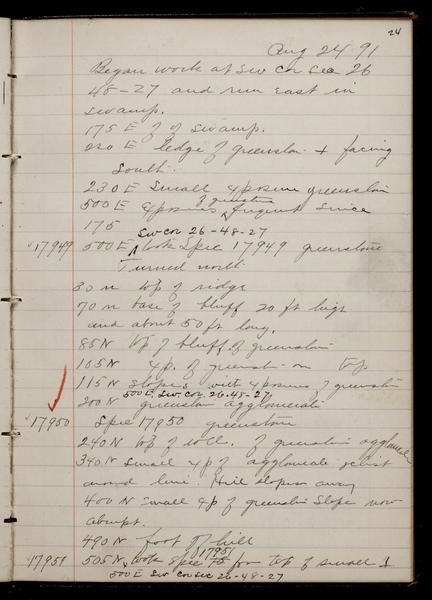 24
Aug 24 91
Began work at SW Cor Sec 26
48-27 and run East in
swamp.
175 E of swamp.
220 E ledge of greenston + facing
South.
230 E Small exposure greenston
500 E exposures of greenston frequent since
175
SW cor 26-48-27
17949 500 E took Spec 17949 greenstone
Turned north
30 N top of ridge
70 N base of bluff 20 ft high
and about 50 ft long.
85 N top of bluff of greenston
105 N exp. of greenston on top
115 N slopes with exposures of greenston
500 E, SW. cor. 26-48-27
200 N greenston agglomerate
17950 Spec 17950 greenstone
240 N top of of greenston agglomerate
340 N small exp of agglomerate schist
around here. Hill slopes away
400 N small exp of greenston slope now
abrupt.
490 N foot of hill
17951 505 N, took spec 17951 from top of small
500 E SW cor sec 26-48-27